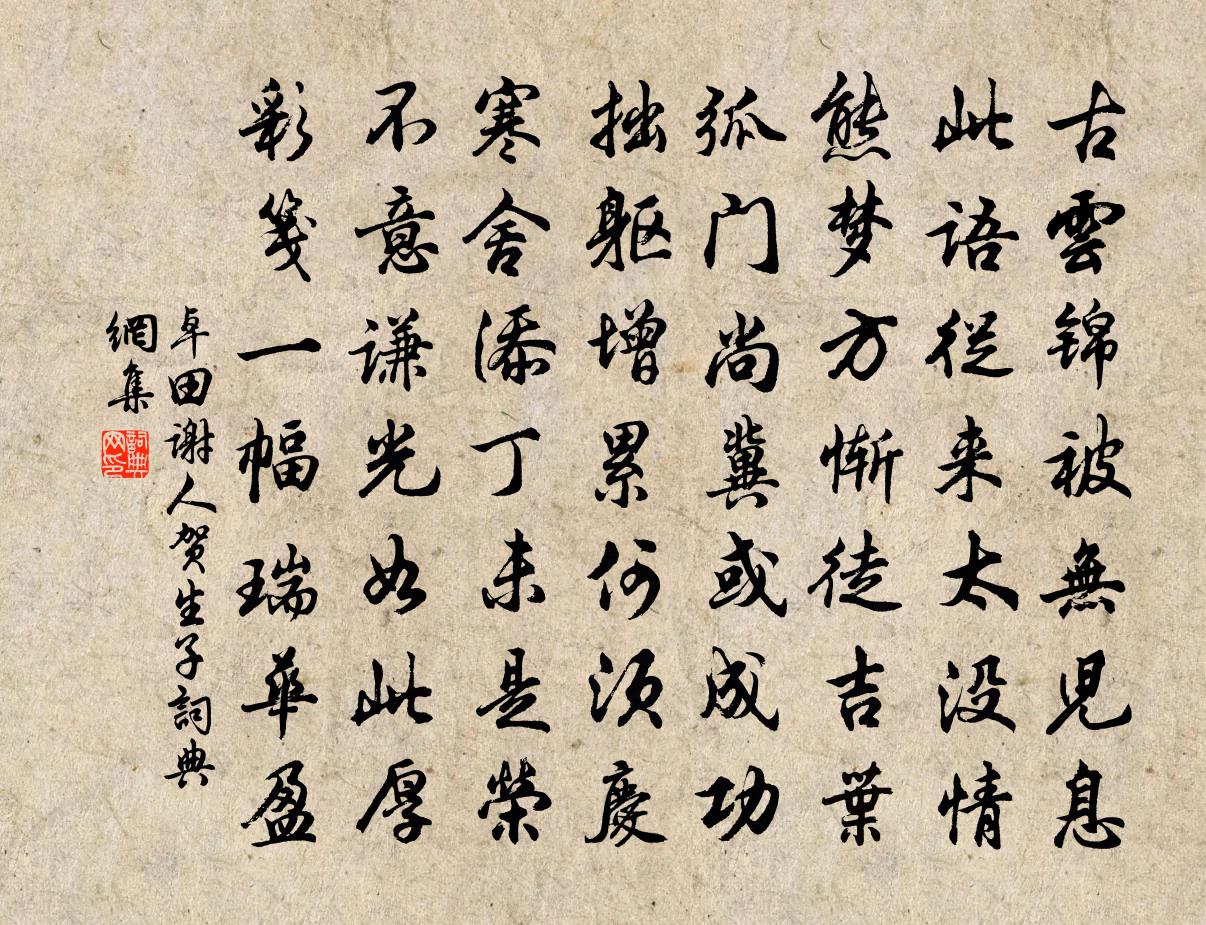 古雲锦被無児息
此语従来太没情
熊梦方惭徒吉葉
弧门尚冀或成功
拙躯增累何须慶
寒舍添丁未是榮
不意谦光如此厚
彩笺一幅瑞華盈
卓田谢人贺生子詞典
網集
詞典网印